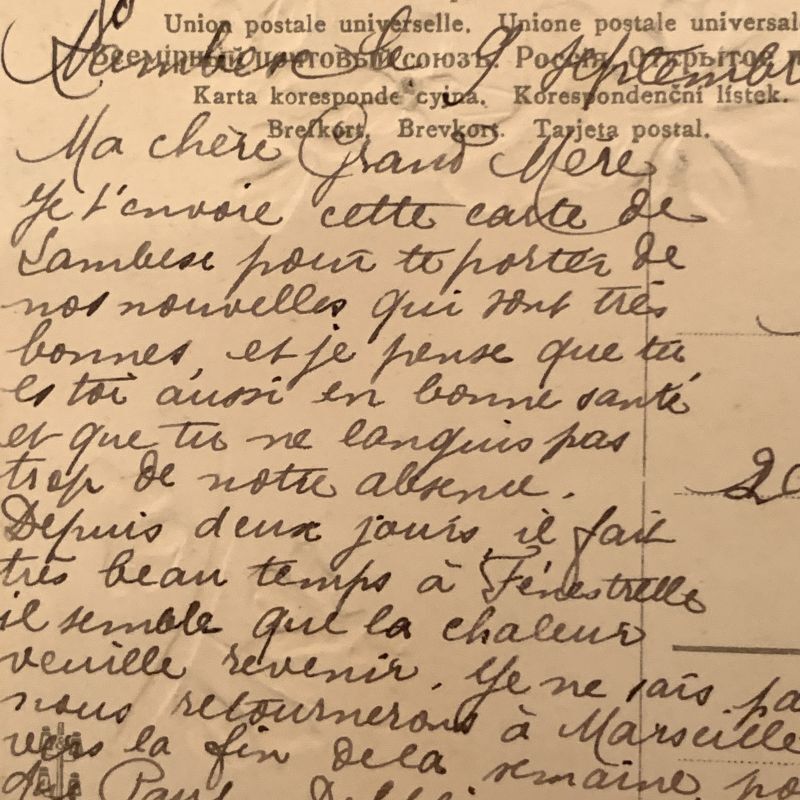 Union postale universelle. Unione postale universal
Всемірный почтовый союзъ. Россія. Открытое п
Lambesc le 9 Septembr
Karta korespondencyjna. Korespondenční lístek.
Brefkort. Brevkort. Tarjeta postal.
Ma chère Grand Mère
Je t'envoie cette carte de
Lambesc pour te porter de
nos nouvelles qui sont très
bonnes, et je pense que tu
es toi aussi en bonne santé
et que tu ne languis pas
trop de notre absence.
Depuis deux jours il fait
très beau temps à Fénestrelle
il semble que la chaleur
veuille revenir. Je ne sais pa
nous retournerons à Marseille
vers la fin de la semaine po
que Paul